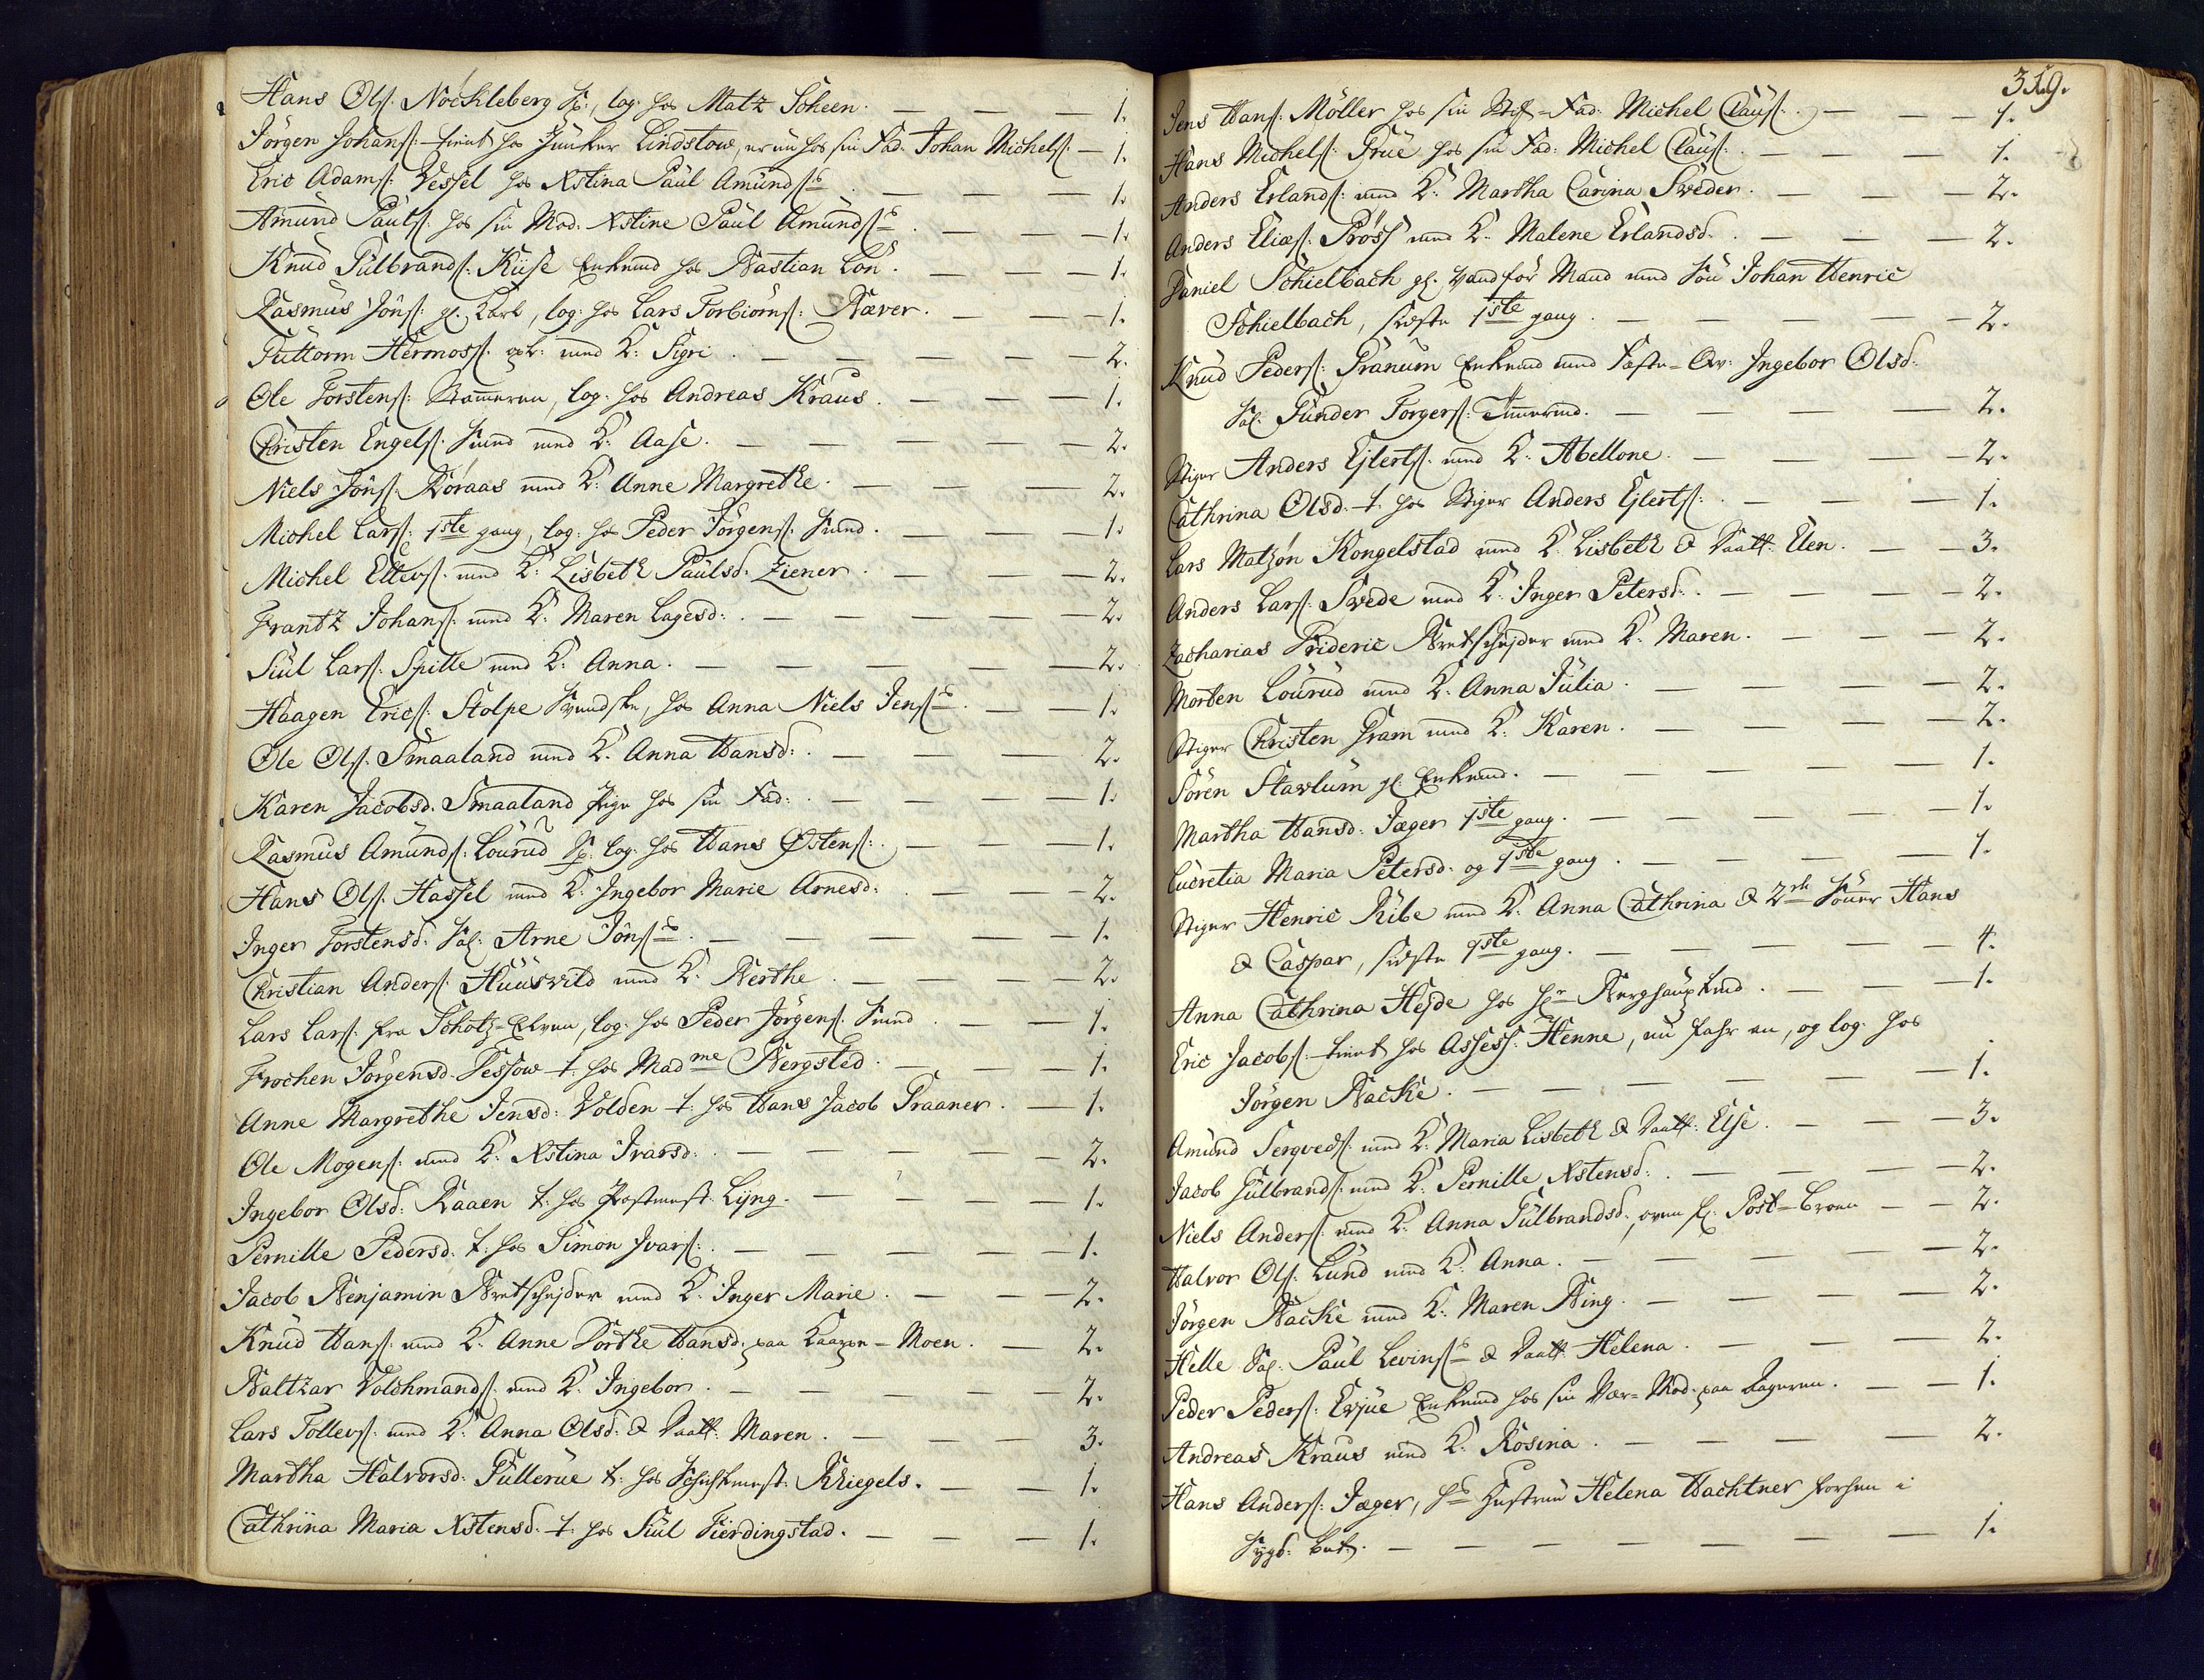 Hans Ols: Nockleberg S:, log: hos Matz Scheen. — — — 1.
Jörgen Johans: tient hos Junker Lindstow, er nu hos sin Fad: Johan Michels: — 1.
Eric Adams: Vessel hos Xstina Paul Amunds — — — 1.
Amund Pauls: hos sin Mod. Xstine Paul Amunds — — — 1.
Knud Gulbrands: Kiise Enkemd hos Bastian Lön. — — — 1.
Rasmus Jöns: gl. Karl, log: hos Lars Torbiörns: Bæver. — — — 1.
Guttorm Hermoss: med K: Sigri. — — — — 2.
Ole Torstens: log: hos Andreas Kraus. — — — 1.
Christen Engels: Smed med K: Aase. — — — — 2.
Niels Jöns: Röraas med K: Anne Margrethe. — — — 2.
Michel Lars: 1ste gang, log: hos Peder Jörgens: Smed. — — — 1.
Michel Ellevs: med K: Lisbeth Paulsd: Ziener. — — — 2.
Frantz Johans: med K: Maren Lagesd: — — — — 2.
Siul Lars: Spille med K: Anna. — — — — — 2.
Haagen Erics: Stolpe Svendske, hos Anna Niels Jens — — — 1.
Ole Ols: Smaaland med K: Anna Hansd: — — — — 2.
Karen Jacobsd: Smaaland Pige hos sin Fad: — — — — 1.
Rasmus Amunds: Lourud S: log: hos Hans Østens: — — — 1.
Hans Ols: Hassel med K: Ingebor Marie Arnesd: — — — 2.
Inger Torstensd: Sal: Arne Jöns — — — — 1.
Christian Anders: Huusvild med K: Berthe. — — — 2.
Lars Lars: fra Schotz-Elven, log: hos Peder Jörgens: Smed. — — 1.
Frochen Jörgensd: Tessow t: hos Madme Bergsted. — — — 1.
Anne Margrethe Jensd: Volden t: hos Hans Jacob Praaner. — 1.
Ole Mogens: med K: Xstina Ivarsd: — — — — 2.
Ingebor Olsd: Raaen t: hos Postmest: Lijng. — — — 1.
Pernille Pedersd: t: hos Simon Ivars: — — — — 1.
Jacob Benjamin Bretschejder med K: Inger Marie. — — — 2.
Knud Hans: med K: Anne Dorthe Hansd: paa Kaapæ-Moen. — 2.
Baltzar Volchmands: med K: Ingebor. — — — — 2.
Lars Tollevs: med K: Anna Olsd: & Daatt: Maren. — — — 3.
Martha Halvorsd: Gullerue t: hos Schichtmest: Kriegels. — — 1.
Cathrina Maria Xstensd: t: hos Siul Fierdingstad. — — — 1.
319.
Jens Hans: Möller hos sin Stif-Fad: Michel Claus: — — — 1.
Hans Michels: Grue hos sin Fad: Michel Claus: — — — 1.
Anders Erlands: med K: Martha Carina Sveder. — — — 2.
Anders Elias: Pröss med K: Malene Erlandsd: — — — 2.
Daniel Schielbach gl. Vandför Mand med Sön Johan Henric
Schielbach, sidste 1ste gang. — — — — — 2.
Knud Peders: Pranum Enkemd med Fæste-Qv: Ingebor Olsd:
Sal: Gunder Torgers: Timermd. — — — — 2.
Stiger Anders Ejlerts: med K: Abellone. — — — — 2.
Cathrina Olsd: t: hos Stiger Anders Ejlerts: — — — 1.
Lars Matzøn Kongelstad med K: Lisbeth & Daatt: Elen. — — 3.
Anders Lars: Svede med K: Inger Petersd: — — — — 2.
Zacharias Frideric Bretschejder med K: Maren. — — — 2.
Morten Lourud med K: Anna Julia. — — — — 2.
Stiger Christen Gram med K: Karen. — — — — 2.
Sören Stavlum gl: Enkemd. — — — — — 1.
Martha Hansd: Jæger 1ste gang. — — — — 1.
Lucretia Maria Petersd: og 1ste gang. — — — — 1.
Stiger Henric Ribe med K: Anna Cathrina & 2de Sönner Hans
& Caspar, sidste 1ste gang. — — — — 4.
Anna Cathrina Hejde hos Hr Berghauptmd. — — — 1.
Eric Jacobs: tient hos Assess: Henne, nu log: hos
Jörgen Backe. — — — — — — 1.
Amund Sergveds: med K: Maria Lisbeth & Daatt: Else. — — 3.
Jacob Gulbrands: med K: Pernille Xstensd: — — — — 2.
Niels Anders: med K: Anna Gulbrandsd: oven f: Post-broen — — 2.
Halvor Ols: Lund med K: Anna. — — — — — 2.
Jörgen Backe med K: Maren Bing. — — — — 2.
Helle Sal: Paul Levins & Daatt: Helena. — — — — 2.
Peder Peders: Evjue Enkemd hos sin Vær-Mod: paa Bageren. — — 1.
Andreas Kraus med K: Rosina. — — — — — 2.
Hans Anders: Jæger, hs Hustrue Helena Wachtner i
— — — — — — — 1.